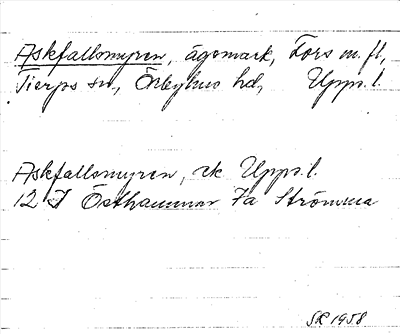 Askfallsmyren, ägomark, Fors m. fl,
Tierps sn, Örbyhus hd, Upps. l.
Askfallsmyren, ek Upps. l.
12 I Östhammar 7a Strömma
SR 1958